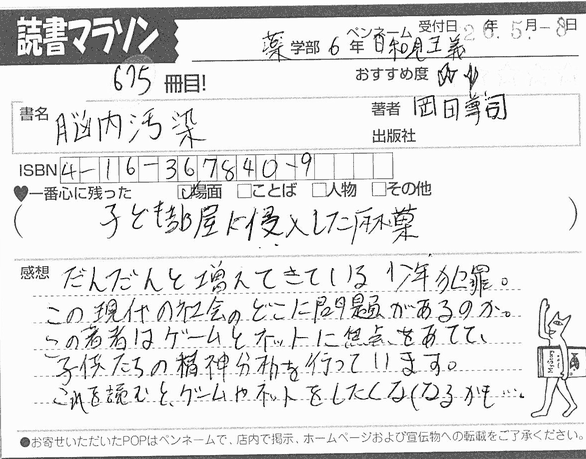 読書マラソン
薬学部 6年 ペンネーム 日和見主義 受付日 26年5.月-8日
675冊目! おすすめ度
書名 脳内汚染 著者 岡田尊司
出版社
ISBN 4-16-367840-9
♥一番心に残った ☑場面 □ことば □人物 □その他
(子ども部屋に侵入した麻薬)
感想 だんだんと増えてきている少年犯罪。
この現代の社会のどこに問題があるのか。
この著者はゲームとネットに焦点をあてて、
子供たちの精神分析を行っています。
これを読むと、ゲームやネットをしたくなくなるかも…。
●お寄せいただいたPOPはペンネームで、店内で掲示、ホームページおよび宣伝物への転載をご了承ください。